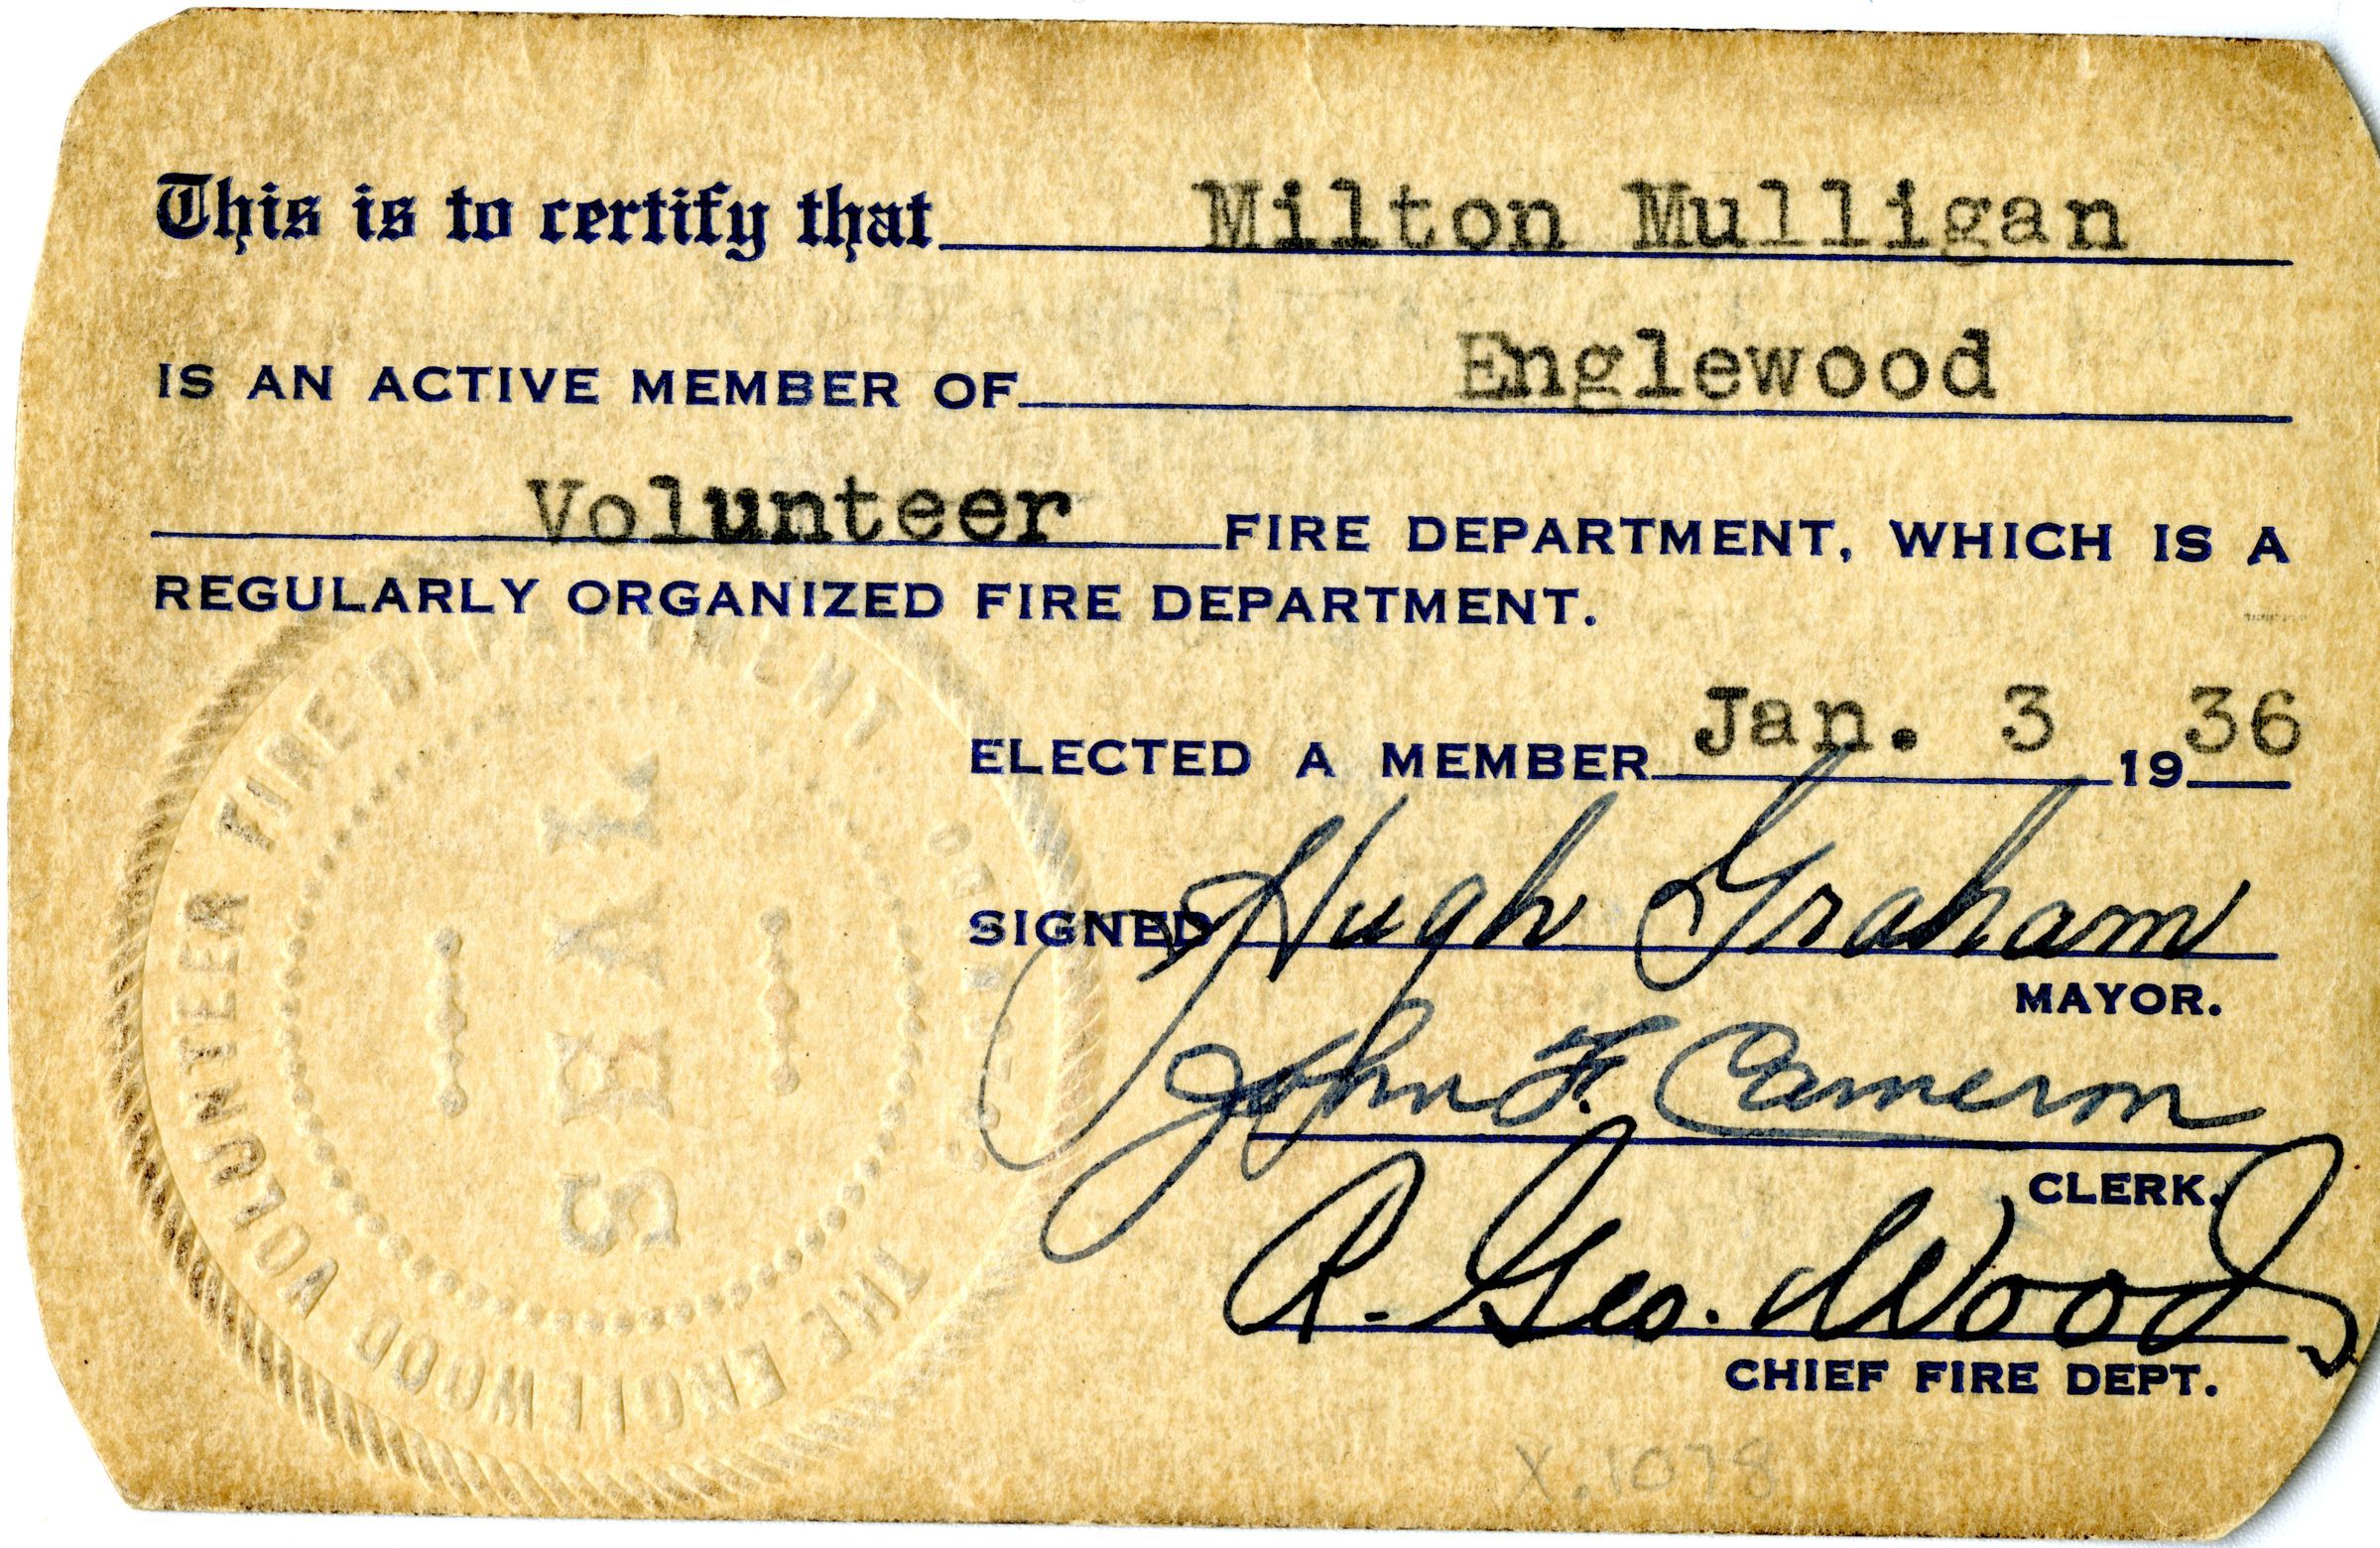 This is to certify that Milton Mulligan
IS AN ACTIVE MEMBER OF Englewood
Volunteer FIRE DEPARTMENT, WHICH IS A
REGULARLY ORGANIZED FIRE DEPARTMENT.
ELECTED A MEMBER Jan. 3 1936
SIGNED Hugh Graham
MAYOR.
John F. Cameron
CLERK.
R. Geo. Woods
CHIEF FIRE DEPT.
THE ENGLEWOOD VOLUNTEER FIRE DEPARTMENT
SEAL
X.1078